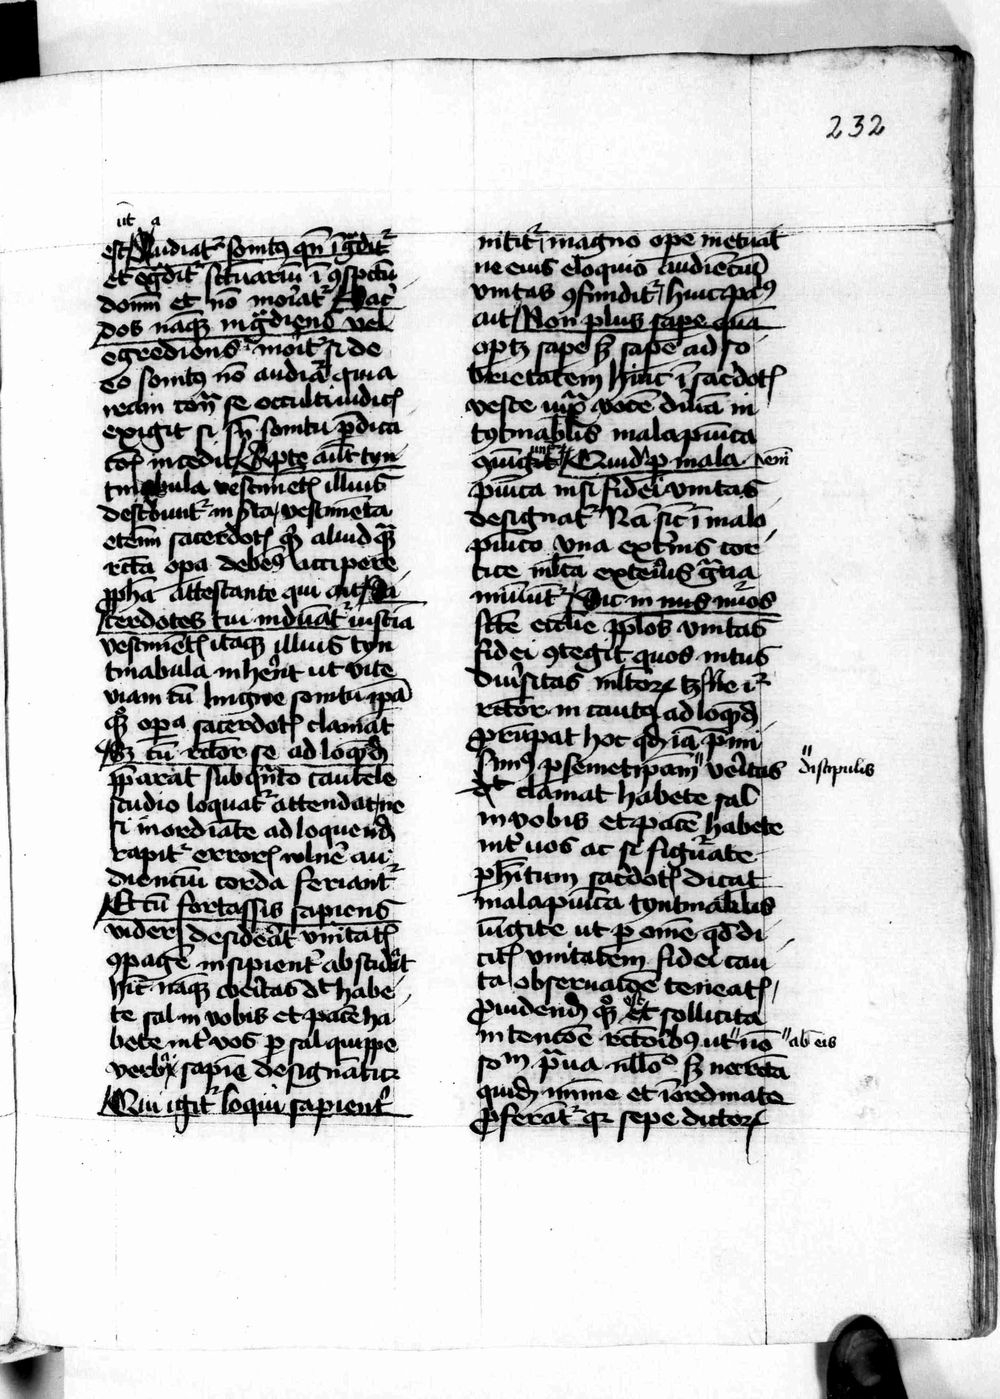 232
ut a
est Audiatr sonitus qn īgdit
et egdit sctuariū ī ꝯspctu
domī et nō moriatr Sacer
dos namq ingrediens vel
egrediens moritr si de
eo sonitus nō audiatr quia
iram contra se occulti iudicis
exigit si sine sonitu predica
cōis incedit Apte autē tyn
tinabula vestimētis illius
describuntr inserta vestimēta
etenim sacerdotis quid aliud quam
recta opera debemus accipere
ppha attestante qui ait Sa
cerdotes tui induātr iusticiā
vestimētis itaq illius tyn
tinabula inherēt ut vite
viam cū lingue sonitu ipsa
quoq opera sacerdotis clament
Sed cū rector se ad loquendū
pparat sub quanto cautele
studio loquatr attendat ne
si inordinate ad loquendū
rapitr erroris vulnere au
diencium corda feriantr
Et cū fortassis sapiens
videri desiderat vnitatis
ꝯpagē insipienter abscidat
hinc namq veritas dicit habe
te sal in vobis et pacē ha
bete inter vos per sal quippe
verbi sapiē designatur
Qui igitr loqui sapienter
nititr magno ope metuat
ne eius eloquio audientiū
vnitas ꝯfunditr hinc paulus
ait Non plus sape quā
oportet sape sed sape ad so
brietatem hinc ī sacerdotis
veste iuxta vocē diuinā in
tytinabulis mala punica
iungitr Quid per mala
enim
punica nisi fidei vnitas
designatr Nā sicut ī malo
punico vna exterius cor
tice multa exterius grana
muniuntr Sic in nūis nūos
sctē ecclie pplos vnitas
fidei ꝯtegit quos intus
diuersitas meritorū tenet ne igitr
rector in cautus ad loquendū
prumpat hoc quod iā premi
simus per semetipam veritas
discipulis
clamat habete sal
in vobis et pacē habete
inter uos ac si figurate
per habitum sacerdotis dicat
mala punica tyntinabulis
iungite ut per omne quod di
citis vnitatem fidei cau
ta obseruacōe teneatis
Prouidendū quoq est sollicita
intencōe rectoribus ut nō
ab eis
solum praua nullo modo sed nec recta
quidem nimie et inordinate
proferantr quia sepe dictorū